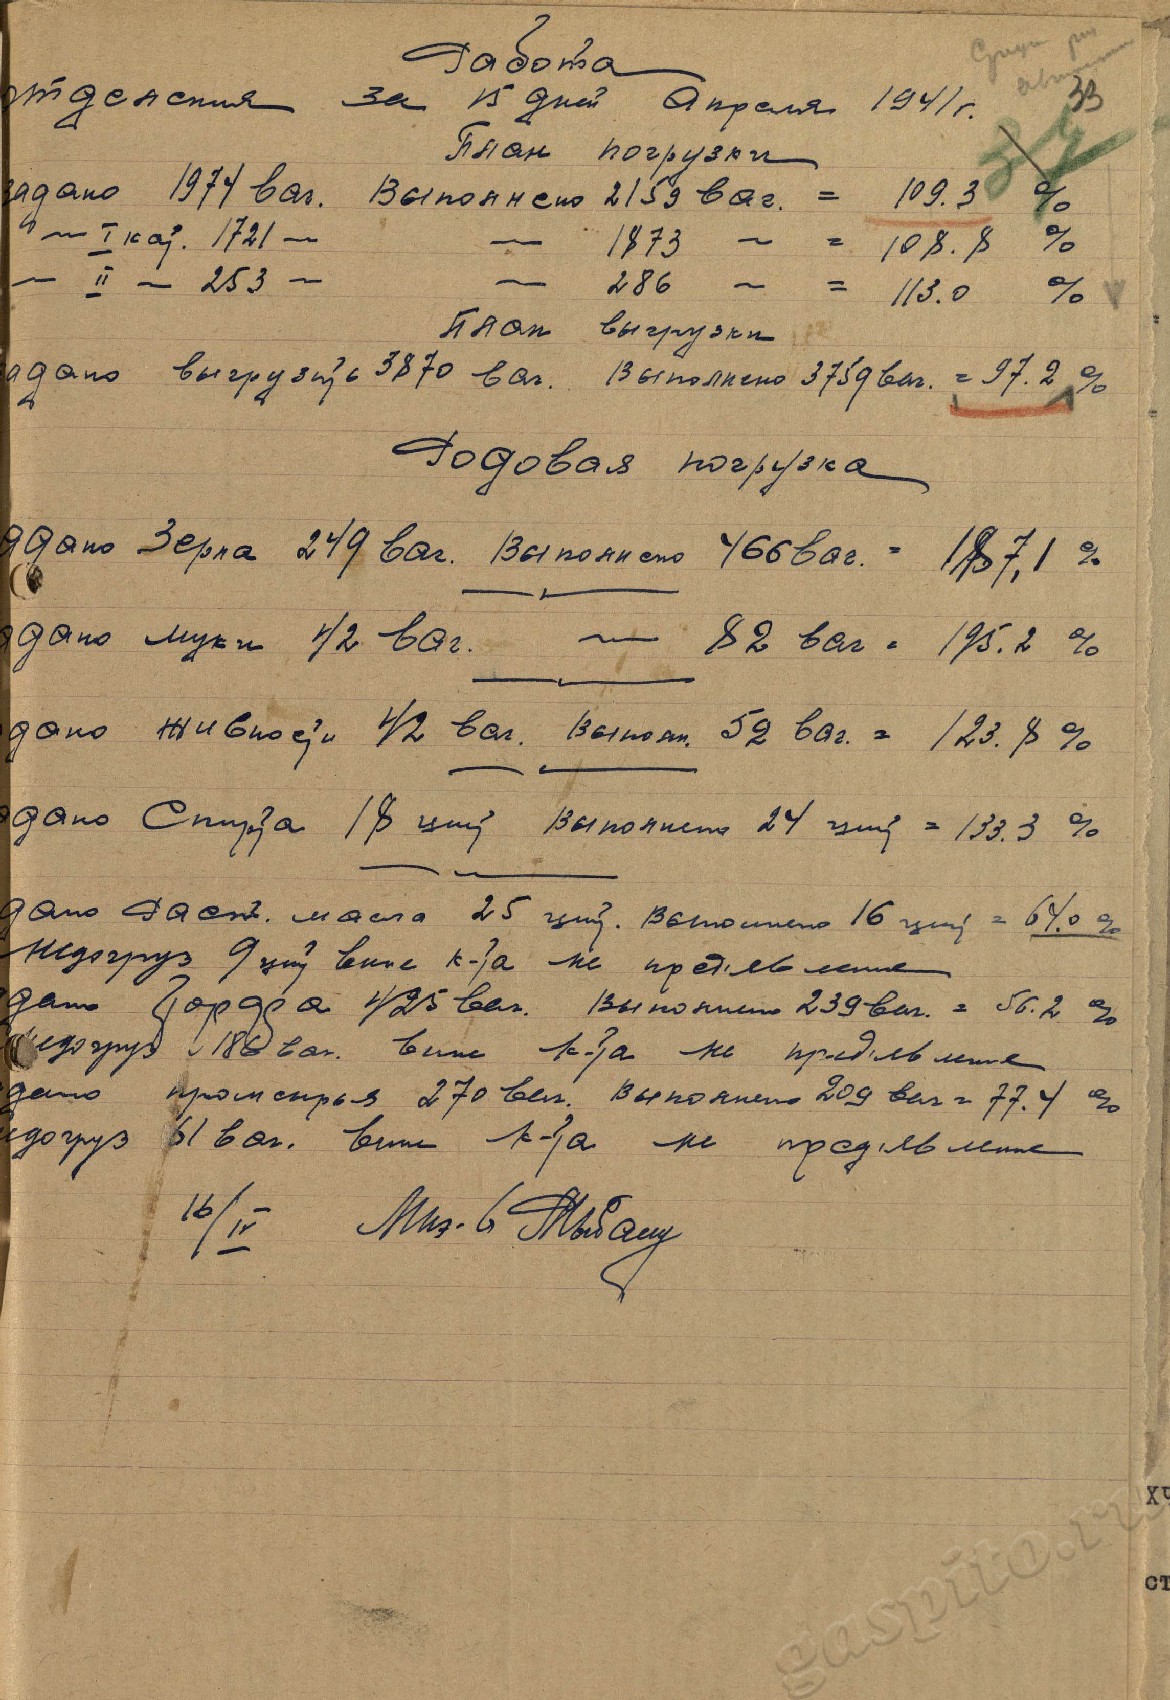 Работа
отделения за 15 дней Апреля 1941 г.
33
34
План погрузки
задано 1974 ваг. Выполнено 2159 ваг. = 109.3 %
" — I кат. 1721 — — 1873 — = 108.8 %
— II — 253 — — 286 — = 113.0 %
План выгрузки
задано выгрузить 3870 ваг. Выполнено 3759 ваг. = 97.2 %
Родовая погрузка
адано Зерна 249 ваг. Выполнено 466 ваг. = 187,1 %
адано муки 42 ваг. — 82 ваг = 195.2 %
дано живности 42 ваг. Выполн. 52 ваг. = 123.8 %
адано Спирта 18 цит Выполнено 24 цит = 133.3 %
дано Раст. масла 25 цит. Выполнено 16 цит = 64.0 %
Недогруз 9 цит вине к-та не пред'явление
дано Торфа 425 ваг. Выполнено 239 ваг. = 56.2 %
Недогруз 186 ваг. вине к-та не пред'явление
дано промсырья 270 ваг. Выполнено 209 ваг = 77.4 %
едогруз 61 ваг. вине к-та не пред'явление
16/IV
хч
ст
gaspito.ru